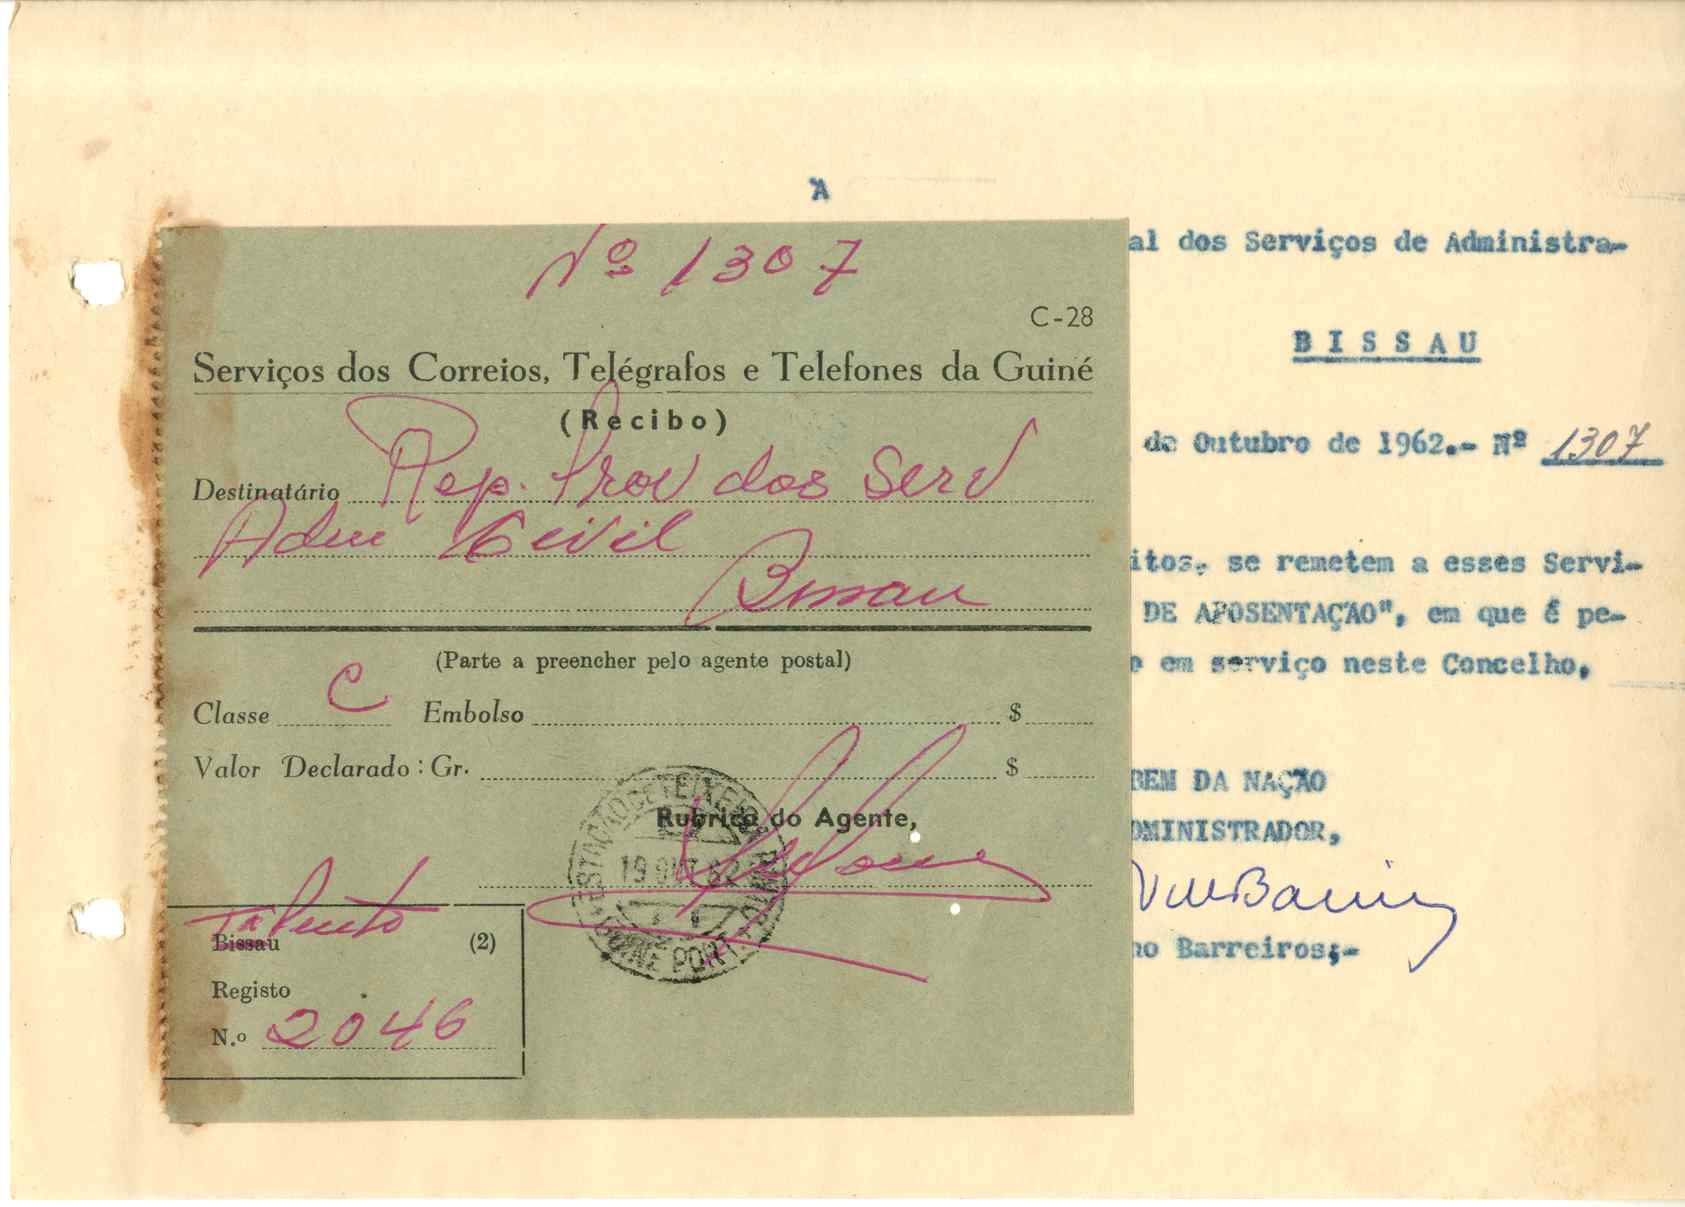 A
al dos Serviços de Administra-
B I S S A U
de Outubro de 1962.- Nº 1307
itos, se remetem a esses Servi-
DE APOSENTAÇÃO", em que é pe-
em serviço neste Concelho,
BEM DA NAÇÃO
DMINISTRADOR,
no Barreiros;-
Nº 1307
C-28
Serviços dos Correios, Telégrafos e Telefones da Guiné
(Recibo)
Destinatário Rep. Prov dos Serv
Adm Civil
Bissau
(Parte a preencher pelo agente postal)
Classe C Embolso $
Valor Declarado: Gr. $
Rubrica do Agente,
ESTAÇÃO DE TEIXEIRA PINTO
19 OUT 62
GUINÉ PORT
Bissau (2)
Registo
N.º 2046